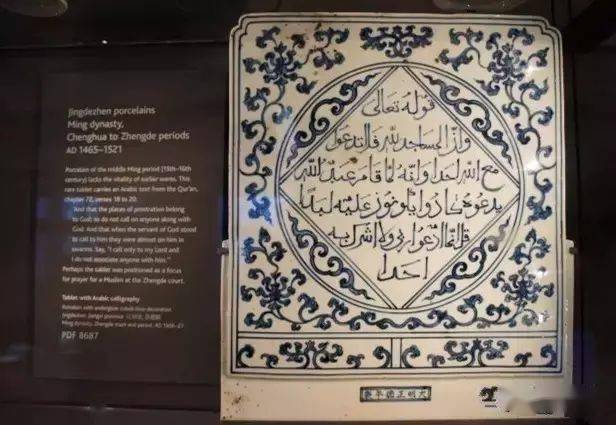 Jingdezhen porcelains
Ming dynasty,
Chenghua to Zhengde periods
AD 1465–1521
Porcelain of the middle Ming period (15th–16th
century) lacks the vitality of earlier wares. This
rare tablet carries an Arabic text from the Qur'an,
chapter 72, verses 18 to 20.
'And that the places of prostration belong
to God; so do not call on anyone along with
God. And that when the servant of God stood
to call to him they were almost on him in
swarms. Say, "I call only to my Lord and
I do not associate anyone with him."'
Perhaps the tablet was positioned as a focus
for prayer for a Muslim at the Zhengde court.
Tablet with Arabic calligraphy
Porcelain with underglaze cobalt-blue decoration
Jingdezhen, Jiangxi province
Ming dynasty, Zhengde mark and period, AD 1506–21
PDF 8687
قوله تعالى
وان المساجد لله فلا تدعوا
مع الله احدا وانه لما قام عبد الله
يدعوه كادوا يكونون عليه لبدا
قل انما ادعوا ربي ولا اشرك به
احدا
大明正德年製